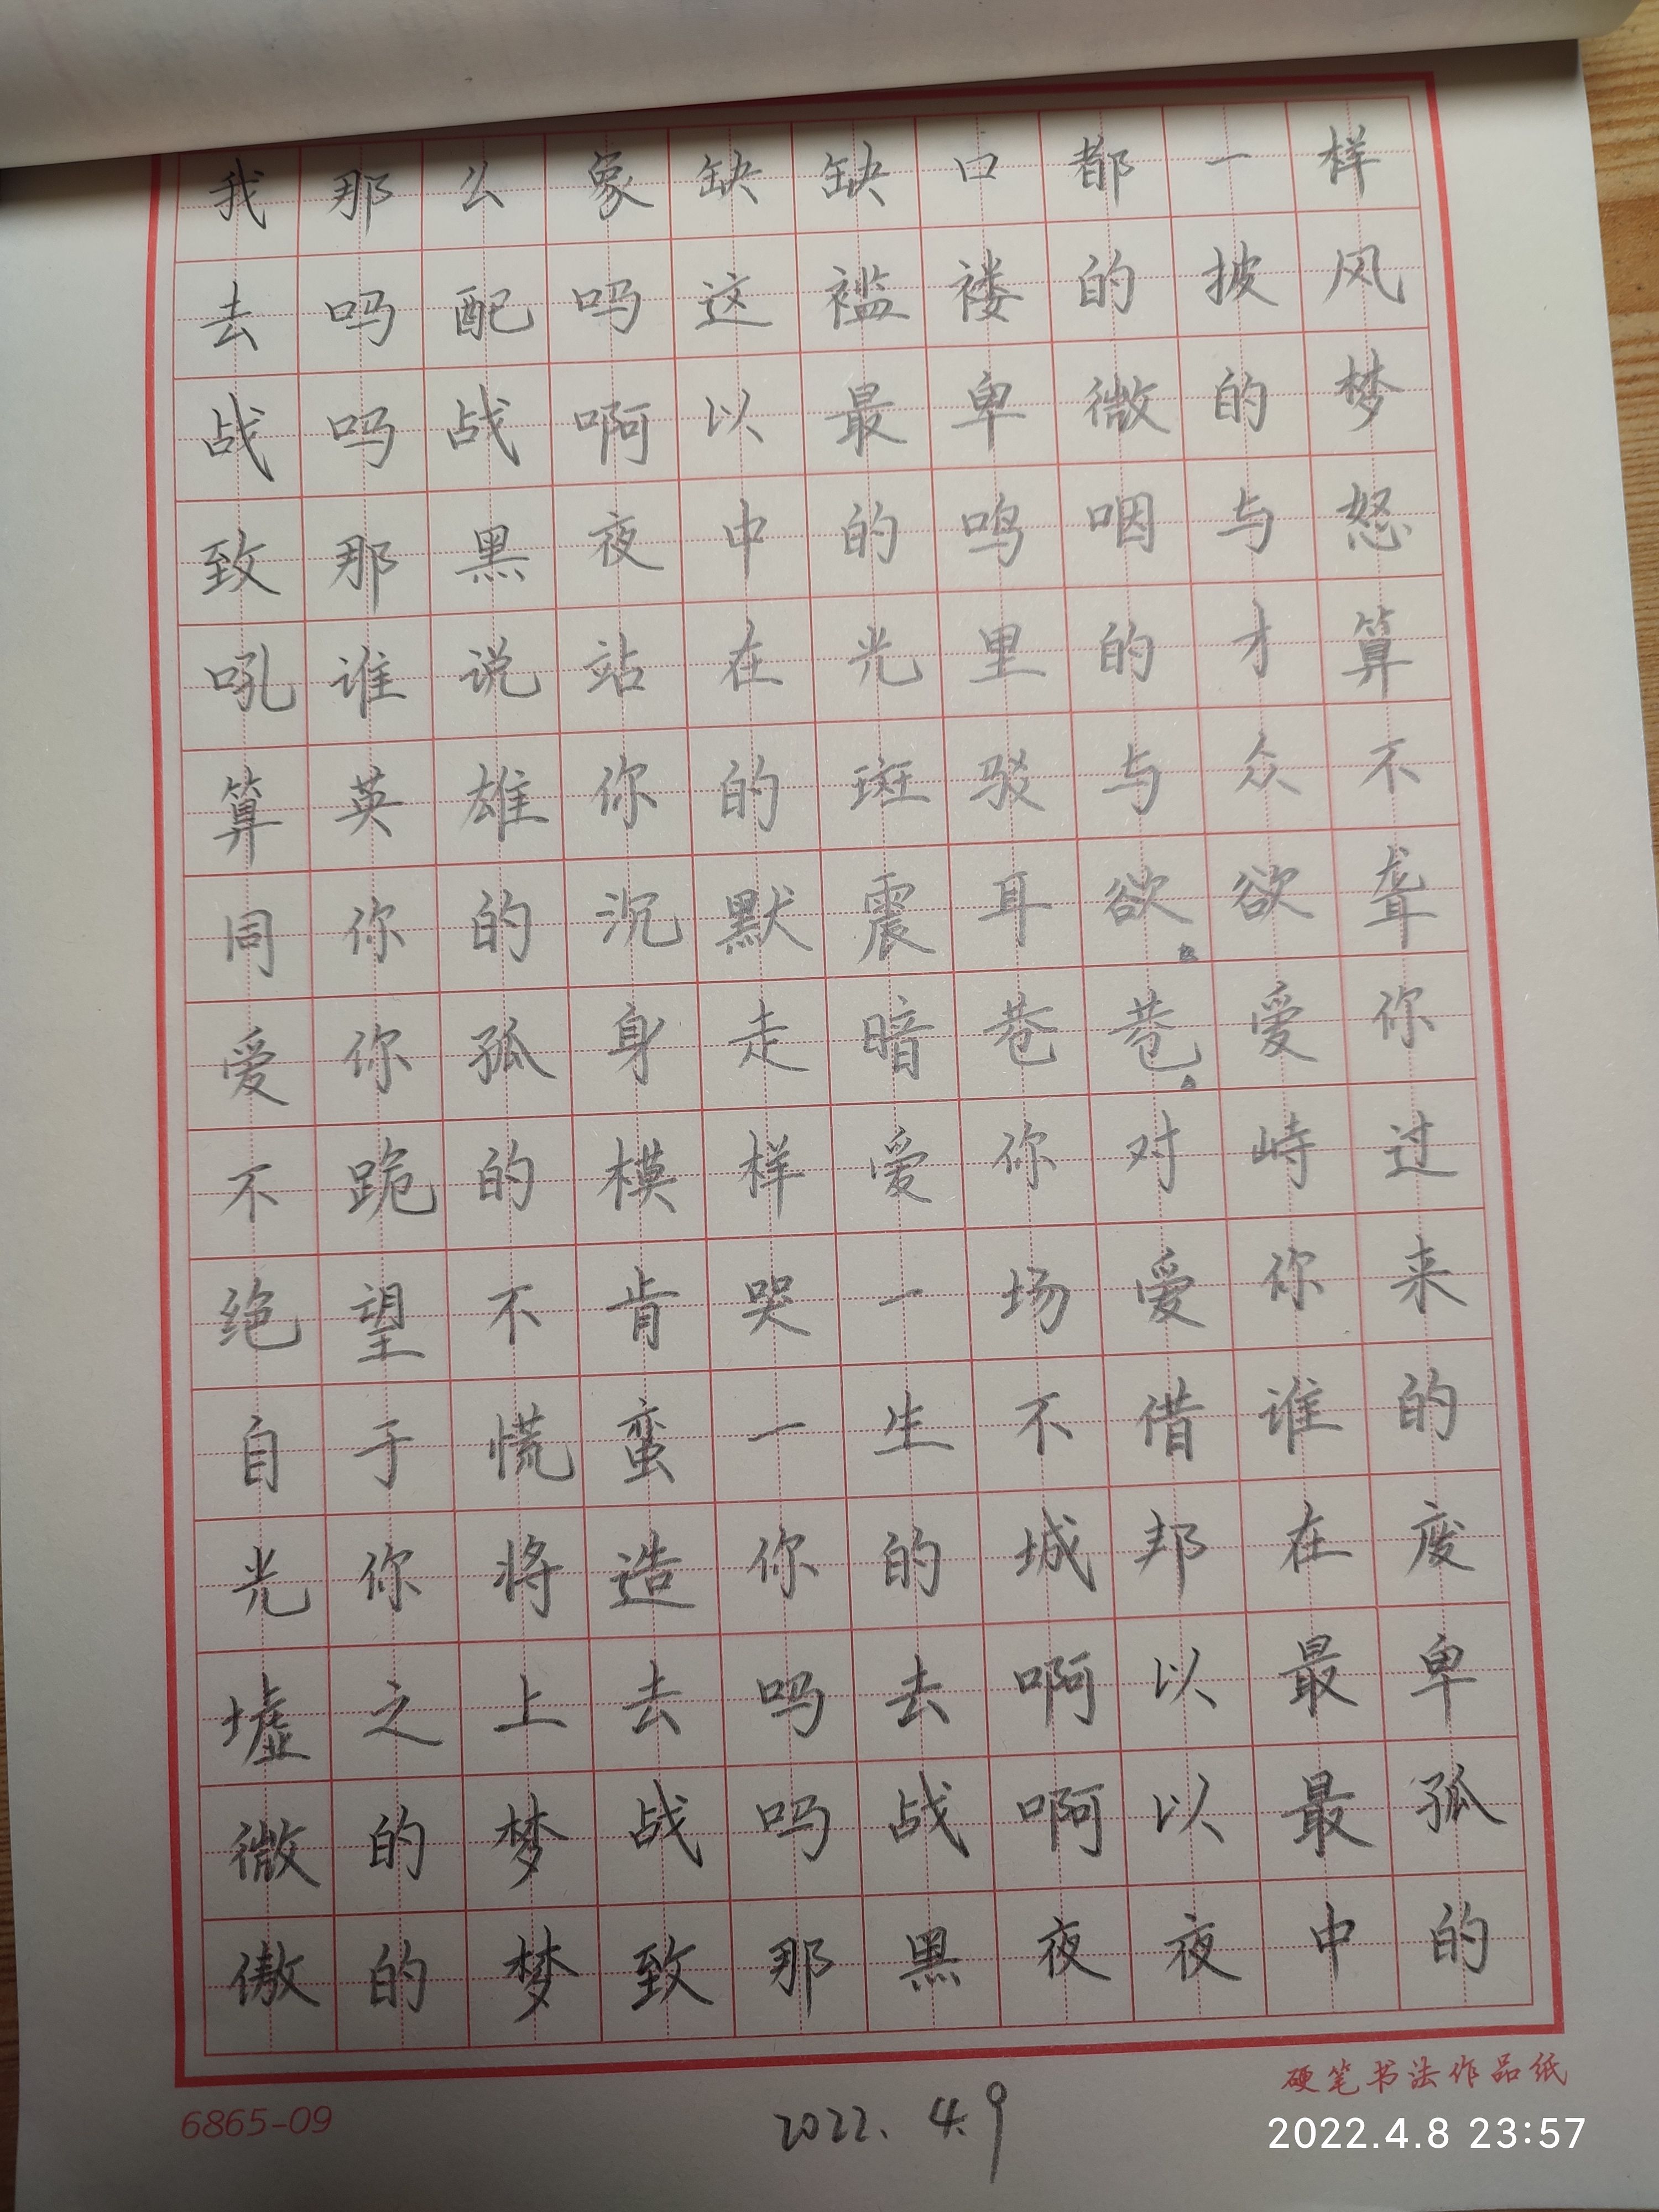 我那么象缺缺口都一样
去吗配吗这褴褛的披风
战吗战啊以最卑微的梦
致那黑夜中的呜咽与怒
吼谁说站在光里的才算
算英雄你的斑驳与众不
同你的沉默震耳欲欲聋
爱你孤身走暗巷巷爱你
不跪的模样爱你对峙过
绝望不肯哭一场爱你来
自于慌蛮一生不借谁的
光你将造你的城邦在废
墟之上去吗去啊以最卑
微的梦战吗战啊以最孤
傲的梦致那黑夜夜中的
硬笔书法作品纸
6865-09
2022.4.9
2022.4.8 23:57